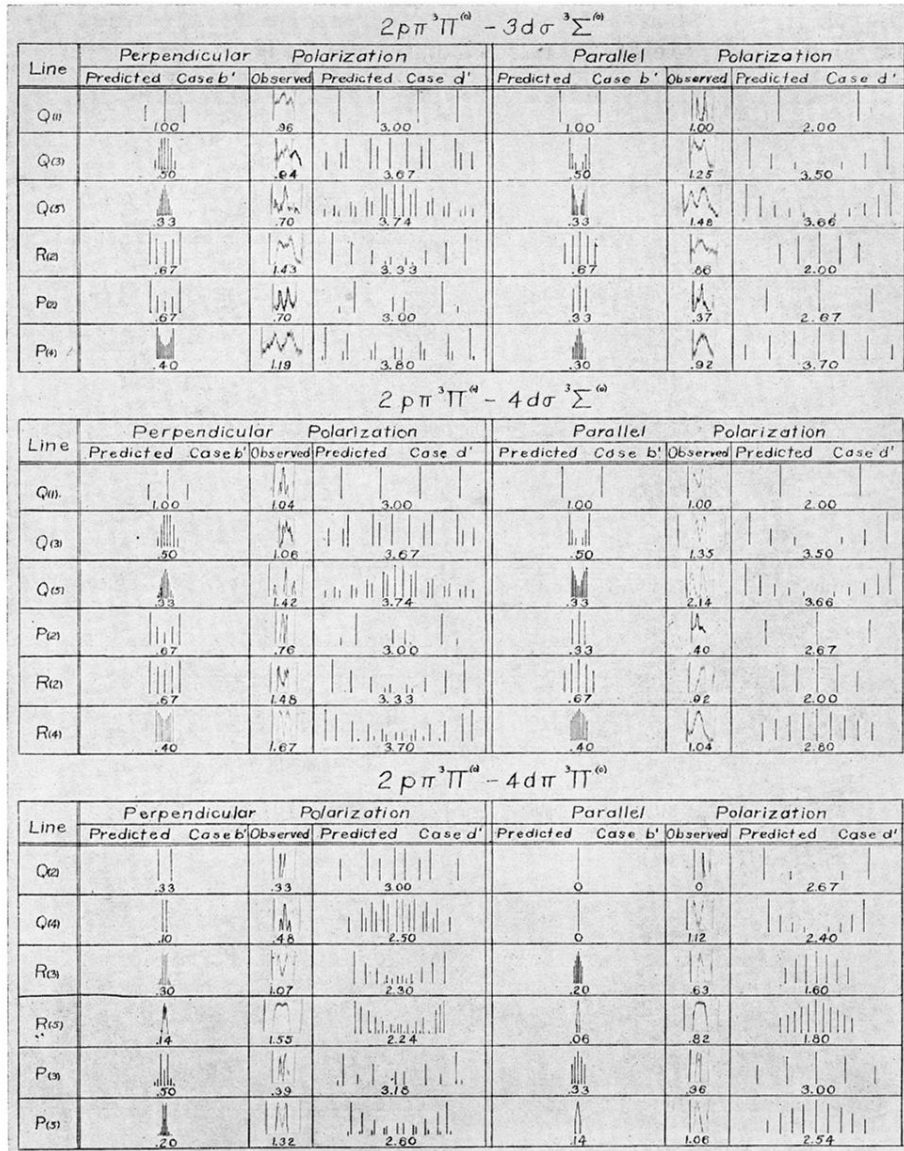 2pπ ³Π⁽ᵒ⁾ – 3dσ ³Σ⁽ᵒ⁾
Line Perpendicular Polarization Parallel Polarization
Predicted Case b' Observed Predicted Case d' Predicted Case b' Observed Predicted Case d'
Q(1) 1.00 .96 3.00 1.00 1.00 2.00
Q(3) .50 .94 3.67 .50 1.25 3.50
Q(5) .33 .70 3.74 .33 1.48 3.66
R(2) .67 1.43 3.33 .67 .86 2.00
P(2) .67 .70 3.00 .33 .37 2.67
P(4) .40 1.19 3.80 .30 .92 3.70
2pπ ³Π⁽ᵒ⁾ – 4dσ ³Σ⁽ᵒ⁾
Line Perpendicular Polarization Parallel Polarization
Predicted Case b' Observed Predicted Case d' Predicted Case b' Observed Predicted Case d'
Q(1) 1.00 1.04 3.00 1.00 1.00 2.00
Q(3) .50 1.06 3.67 .50 1.35 3.50
Q(5) .33 1.42 3.74 .33 2.14 3.66
P(2) .67 .76 3.00 .33 .40 2.67
R(2) .67 1.48 3.33 .67 .92 2.00
R(4) .40 1.67 3.70 .40 1.04 2.80
2pπ ³Π⁽ᵒ⁾ – 4dπ ³Π⁽ᵒ⁾
Line Perpendicular Polarization Parallel Polarization
Predicted Case b' Observed Predicted Case d' Predicted Case b' Observed Predicted Case d'
Q(2) .33 .33 3.00 0 0 2.67
Q(4) .10 .48 2.50 0 1.12 2.40
R(3) .30 1.07 2.30 .20 .63 1.60
R(5) .14 1.55 2.24 .06 .82 1.80
P(3) .50 .39 3.18 .33 .36 3.00
P(5) .20 1.32 2.60 .14 1.06 2.54